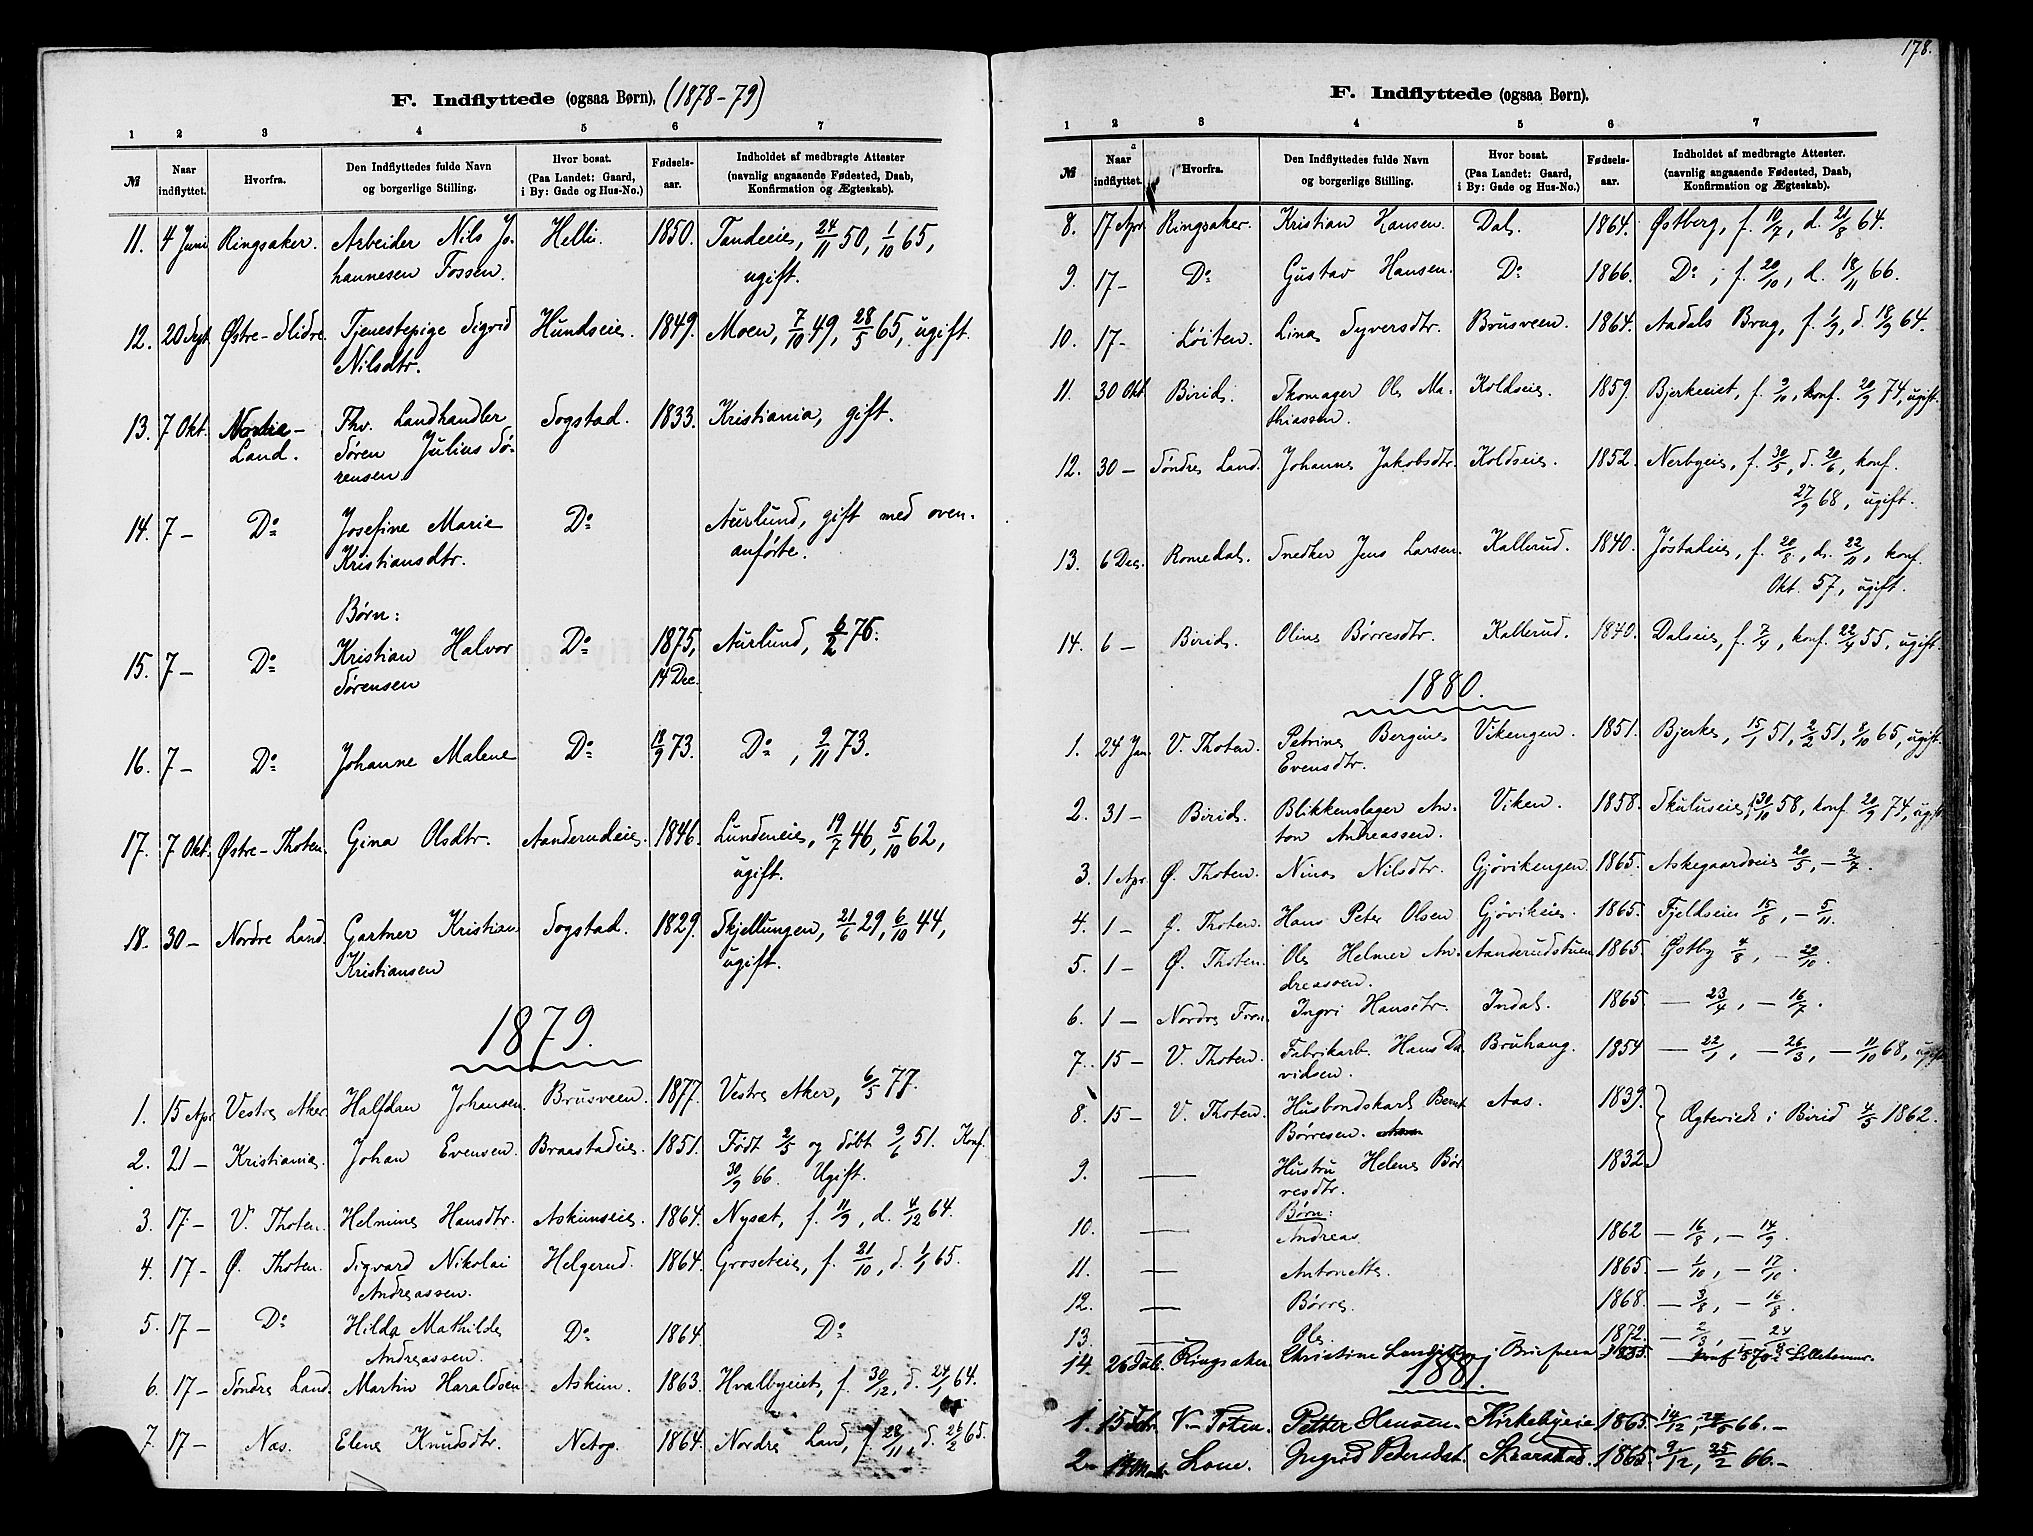 178.
F. Indflyttede (ogsaa Børn), (1878-79)
1 2 3 4 5 6 7
№ Naar indflyttet. Hvorfra. Den Indflyttedes fulde Navn og borgerlige Stilling. Hvor bosat. (Paa Landet: Gaard, i By: Gade og Hus-No.) Fødsels-aar. Indholdet af medbragte Attester (navnlig angaaende Fødested, Daab, Konfirmation og Ægteskab).
11. 4 Juni Ringsaker. Arbeider Nils Jo- Helli. 1850. Tandeeie, 24/11 50, 1/10 65,
hannesen Fossen. ugift.
12. 20 Sept Østre-Slidre. Tjenestepige Sigrid Hundseie. 1849. Moen, 7/10 49, 28/5 65, ugift.
Nilsdtr.
13. 7 Okt. Nordre- Fhv. Landhandler Sogstad. 1833. Kristiania, gift.
Land. Søren Julius Sø-
rensen
14. 7 — Do Josefine Marie Do Aurlund, gift med oven-
Kristiansdtr. anførte.
Børn:
15. 7 — Do Kristian Halvor Do 1875, Aurlund, 6/2 76.
Sørensen 14 Dec.
16. 7 — Do Johanne Malene Do 18/9 73. Do, 9/11 73.
17. 7 Okt. Østre-Thoten. Gina Olsdtr. Aanderudeie. 1846. Lundeneie, 19/7 46, 5/10 62,
ugift.
18. 30 — Nordre Land. Gartner Kristian Sogstad. 1829. Skjellungen, 21/6 29, 6/10 44,
Kristiansen ugift.
1879.
1. 15 Apr Vestre Aker. Halfdan Johansen. Brusveen. 1877. Vestre Aker, 6/5 77.
2. 21 — Kristiania. Johan Evensen. Braastadeie. 1851. Født 2/5 og døbt 9/6 51. Konf.
30/9 66. Ugift.
3. 17 — V. Thoten. Helmine Hansdtr. Askimseie. 1864. Nysæt, f. 11/9, d. 4/12 64.
4. 17 — Ø. Thoten. Sigvard Nikolai Helgerud. 1864. Groseteie, f. 21/10, d. 1/1 65.
Andreassen.
5. 17 — Do Hilda Mathilde Do 1864. Do
Andreassen.
6. 17 — Søndre Land. Martin Haraldsen. Askim. 1863. Hvalbyeiet, f. 30/12, d. 24/1 64.
7. 17 — Næs. Elene Knudsdtr. Netop. 1864. Nordre Land, f. 28/11, d. 26/2 65.
F. Indflyttede (ogsaa Børn).
1 2 3 4 5 6 7
№ Naar indflyttet. Hvorfra. Den Indflyttedes fulde Navn og borgerlige Stilling. Hvor bosat. (Paa Landet: Gaard, i By: Gade og Hus-No.) Fødsels-aar. Indholdet af medbragte Attester. (navnlig angaaende Fødested, Daab, Konfirmation og Ægteskab).
8. 17 Apr Ringsaker. Kristian Hansen. Dal. 1864. Østberg, f. 10/7, d. 21/8 64.
9. 17 — Do Gustav Hansen. Do 1866. Do, f. 20/10, d. 18/11 66.
10. 17 — Løiten. Lina Syversdtr. Brusveen. 1864. Aadals Brug, f. 1/9, d. 18/9 64.
11. 30 Okt Birid. Skomager Ole Ma- Koldseie. 1859. Bjerkeeiet, f. 9/10, konf. 20/9 74, ugift.
thiassen.
12. 30 — Søndre Land. Johanne Jakobsdtr. Koldseie. 1852. Nerbyeie, f. 30/5, d. 20/6, konf.
27/9 68, ugift.
13. 6 Dec. Romedal. Snedker Jens Larsen. Kallerud. 1840. Jøstadeie, f. 20/8, d. 22/11, konf.
Okt. 57, ugift.
14. 6 — Birid. Oline Børresdtr. Kallerud. 1840. Dalseie, f. 7/4, konf. 22/4 55, ugift.
1880.
1. 24 Jan. V. Thoten. Petrine Bergine Vikengen. 1851. Bjerke, 15/1 51, 2/2 51, 8/10 65, ugift.
Evensdtr.
2. 31 — Birid. Blikkenslager An- Viken. 1858. Skuluseie, 30/10 58, konf. 20/9 74, ugift
ton Andreassen.
3. 1 Apr. Ø. Thoten. Nina Nilsdtr. Gjøvikengen. 1865. Askegaardseie 20/5, — 2/7.
4. 1 — Ø. Thoten. Hans Peter Olsen Gjøvikeie. 1865. Fjeldseie 15/8, — 5/11.
5. 1 — Ø. Thoten. Ole Helmer An- Aanderudstuen 1865. Østby 4/8, — 29/10.
dreassen.
6. 1 — Nordre Fron. Ingri Hansdtr. Indal. 1865. — 23/4, — 16/7.
7. 15 — V. Thoten. Fabrikarb. Hans Da- Bruhaug. 1854 — 22/1, — 26/3, — 11/10 68, ugift
vidsen.
8. 15 — V. Thoten. Husbondskarl Bernt Aas. 1839. Ægteviede i Birid 4/5 1862.
Børresen.
9. — Hustru Helene Bør- 1832
resdtr.
Børn:
10. — Andreas 1862 — 16/8, — 14/9.
11. — Antonette. 1865. — 1/10, — 17/10.
12. — Børre. 1868. — 3/8, — 16/8.
13. — Ole. 1872. — 2/3, — 24/3
14. 26 Ringsaker Christine 1855. Lillehammer.
1881.
1. 15 V-Toten. Petter Hansen. Kirkebyeie 1865. 14/12, 66. —
2. Lom. Ingrid Pedersdat. Skaarstad. 1865. 9/12, 25/2 66. —